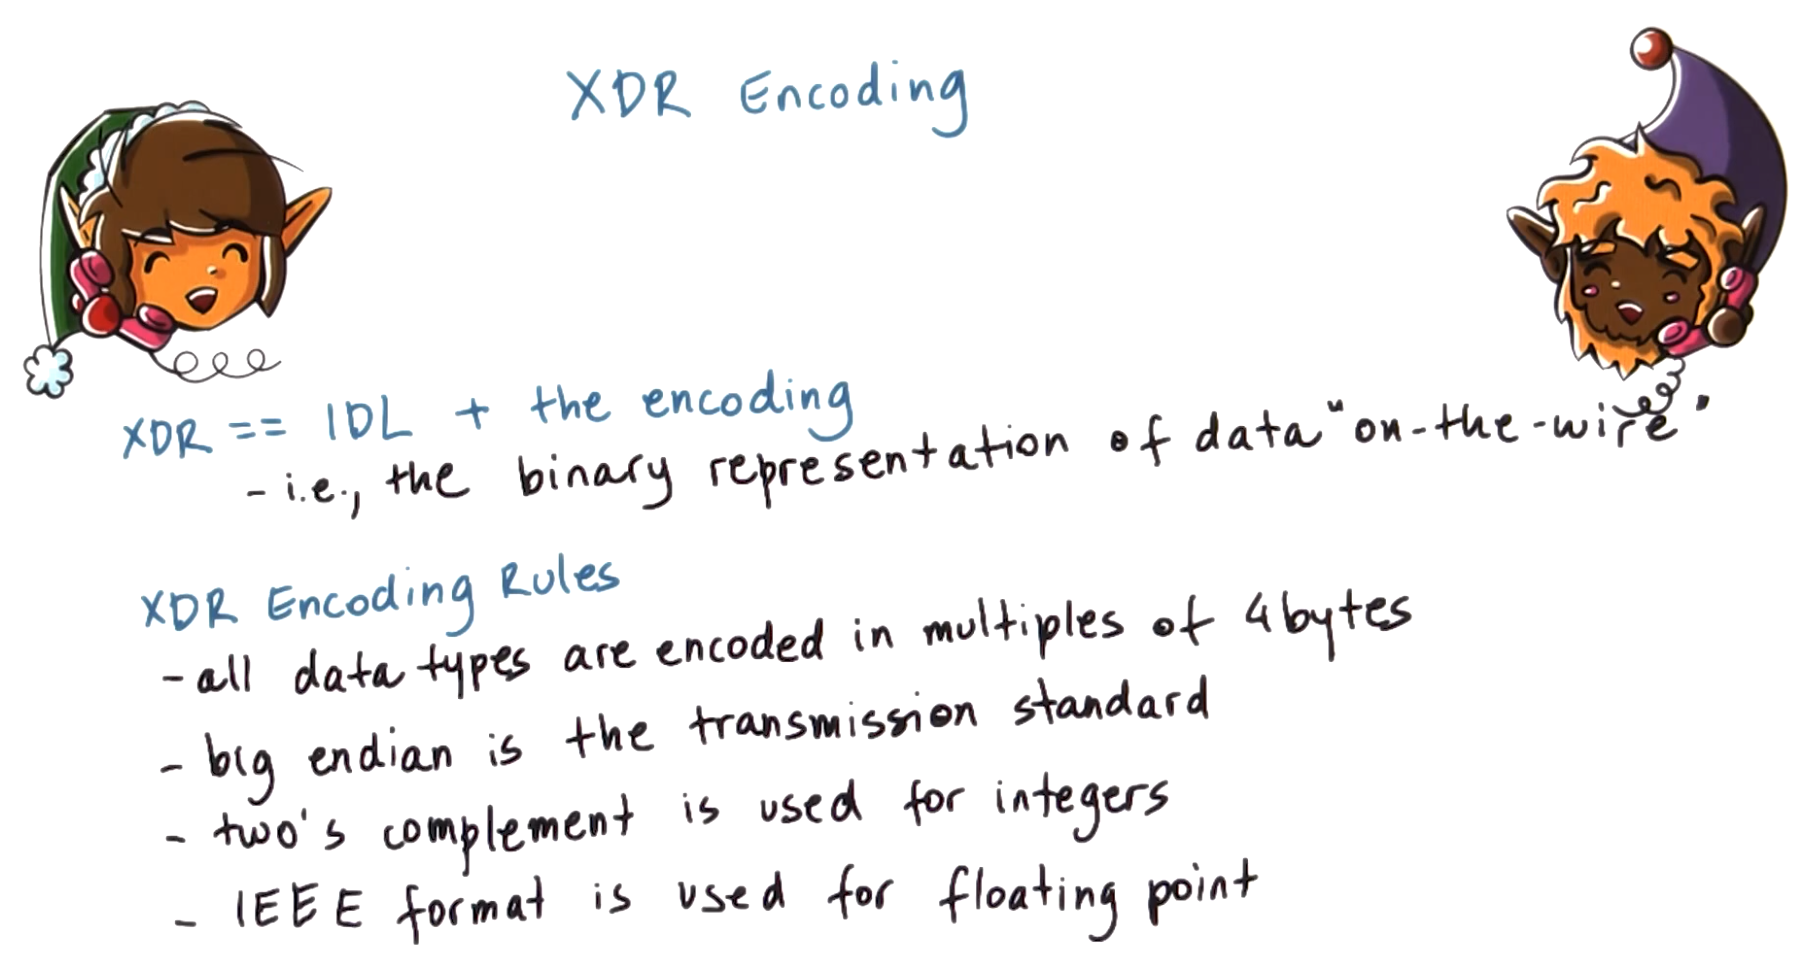 XDR Encoding
XDR == IDL + the encoding
- i.e., the binary representation of data "on-the-wire"
XDR Encoding Rules
- all data types are encoded in multiples of 4 bytes
- big endian is the transmission standard
- two's complement is used for integers
- IEEE format is used for floating point